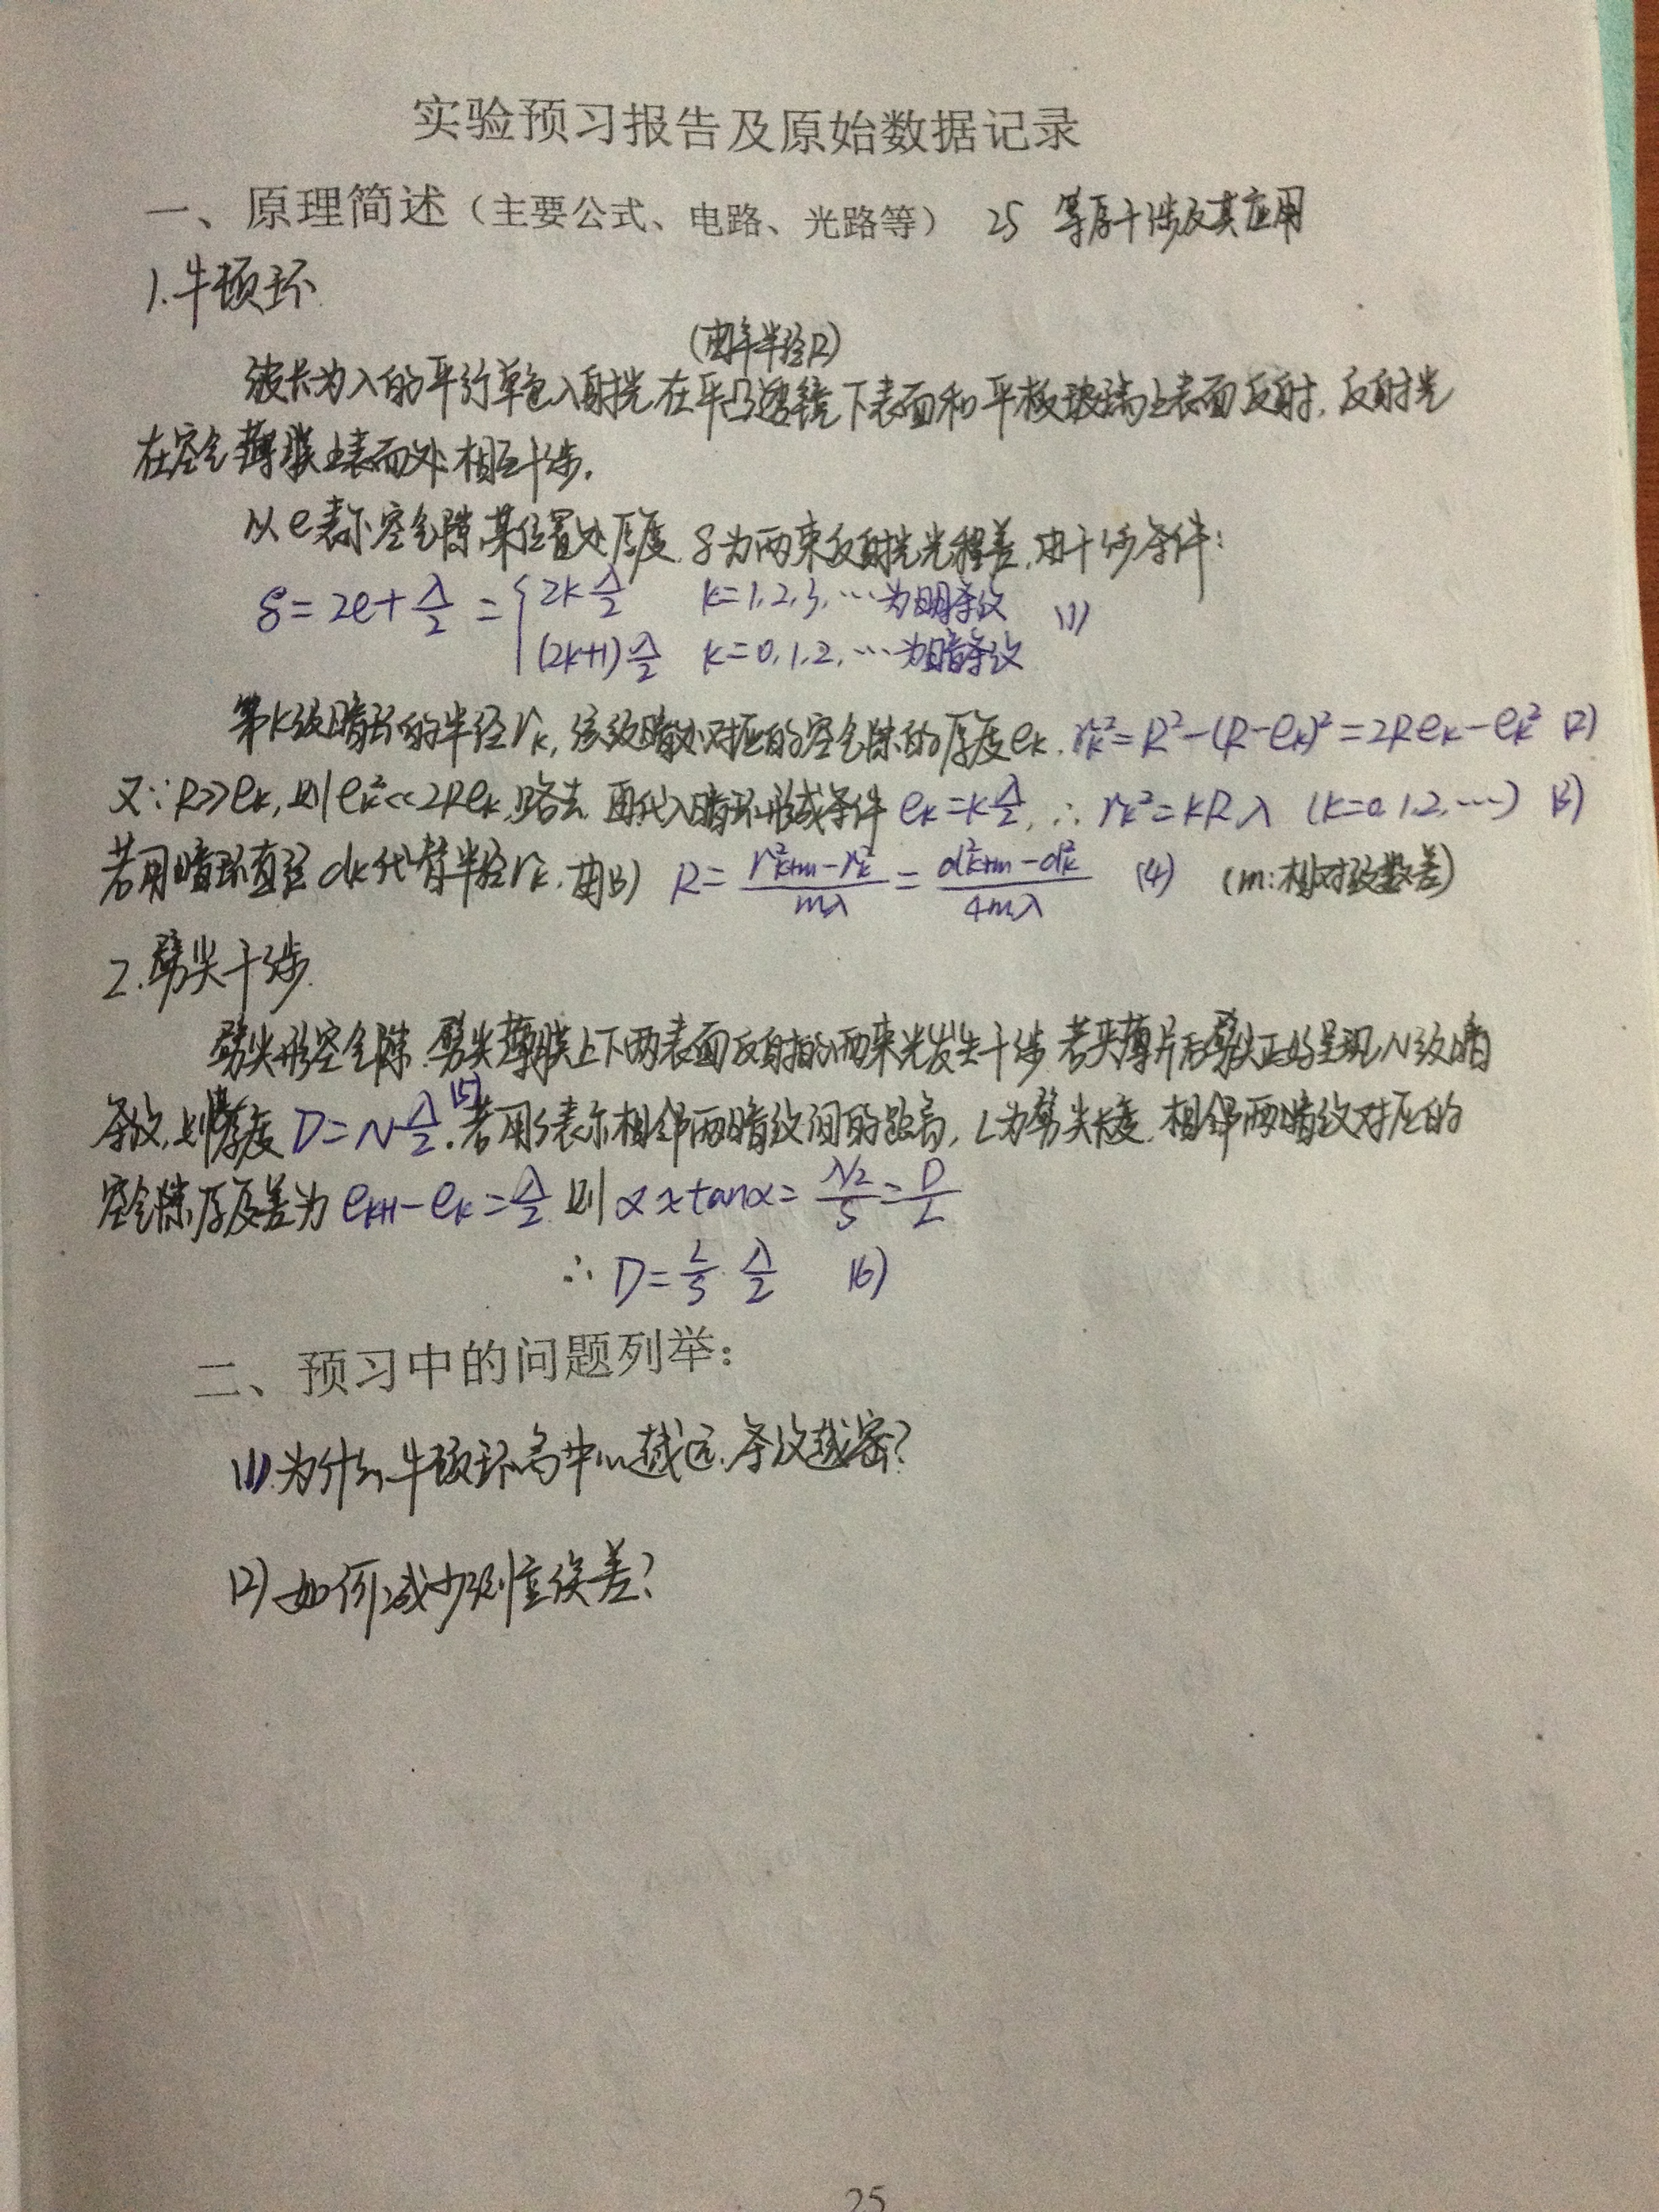 实验预习报告及原始数据记录
一、原理简述（主要公式、电路、光路等） 25 等厚干涉及其应用
1.牛顿环
(曲率半径R)
波长为λ的平行单色入射光在平凸透镜下表面和平板玻璃上表面反射，反射光
在空气薄膜上表面处相互干涉.
以e表示空气隙某位置处厚度，δ为两束反射光光程差，由干涉条件：
δ=2e+λ/2={2k λ/2 k=1,2,3,…为明条纹 (1)
(2k+1)λ/2 k=0,1,2,…为暗条纹
第k级暗环的半径rk，该级暗处对应的空气隙的厚度ek. rk²=R²-(R-ek)²=2Rek-ek² (2)
又∵R>>ek,则ek²<<2Rek,略去，再代入暗环形成条件ek=kλ/2,∴rk²=kRλ (k=0,1,2,…) (3)
若用暗环直径dk代替半径rk，由(3) R=(r²k+m-r²k)/mλ=(d²k+m-d²k)/4mλ (4) (m:相对级数差)
2.劈尖干涉.
劈尖形空气隙，劈尖薄膜上下两表面反射的两束光发生干涉，若夹薄片后劈尖正好呈现N级暗
条纹，则厚度D=N λ/2 (5).若用S表示相邻两暗纹间的距离，L为劈尖长度，相邻两暗纹对应的
空气隙厚度差为ek+1-ek=λ/2 则α≈tanα=(λ/2)/S=D/L
∴D=L/S·λ/2 (6)
二、预习中的问题列举：
(1)为什么牛顿环离中心越远，条纹越密？
(2)如何减少测量误差？
25